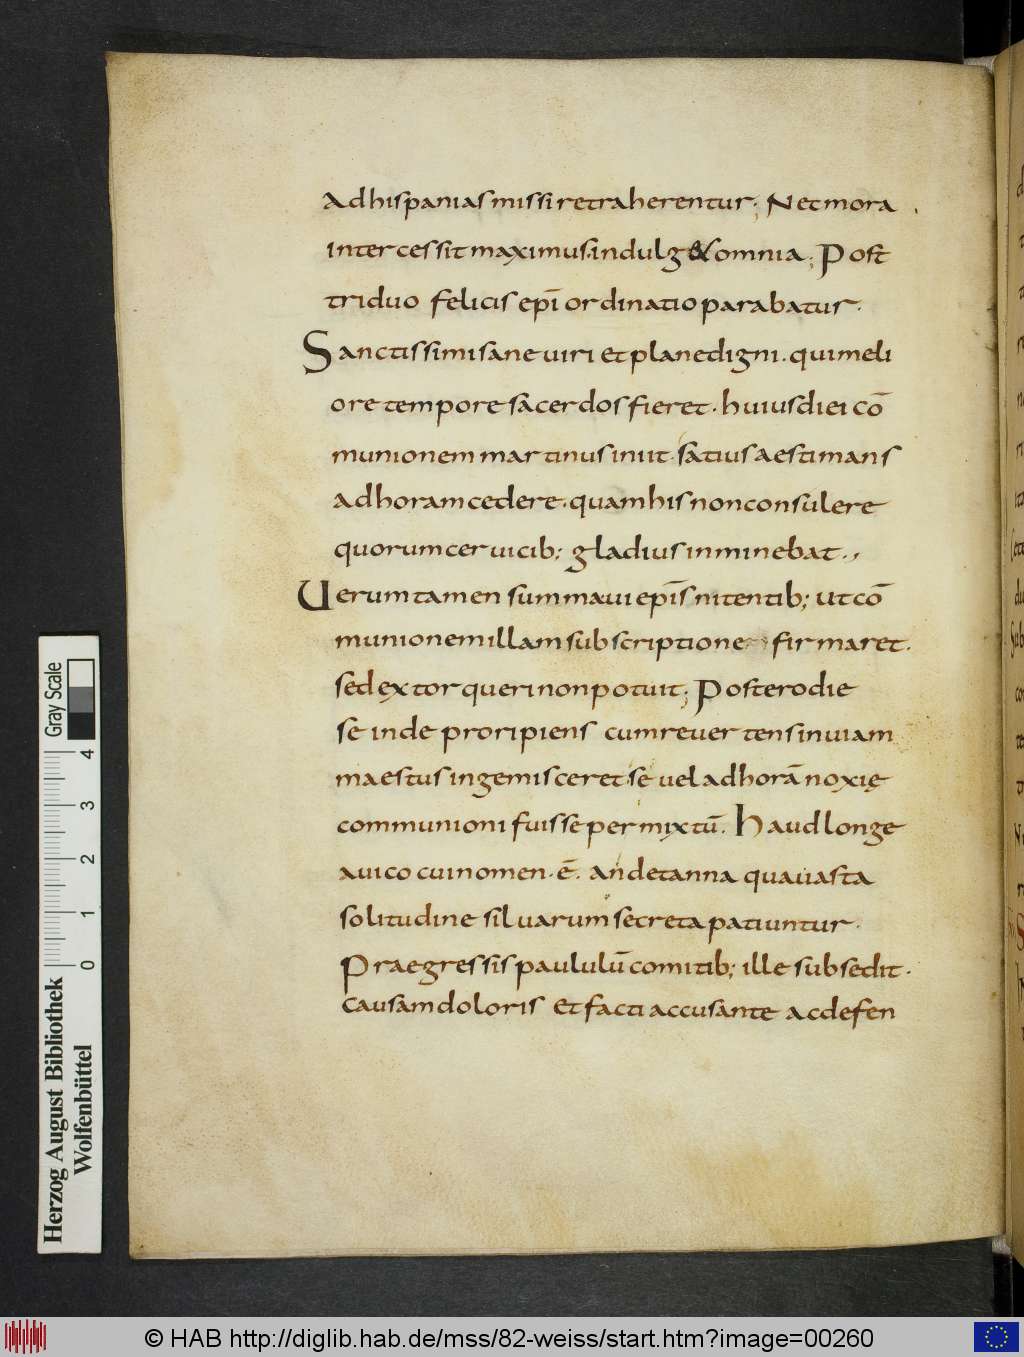 ad hispanias missi retraherentur; Nec mora
intercessit maximus. indulg& omnia; Post
triduo felicis epī ordinatio parabatur.
Sanctissimi sane viri et plane digni. qui meli
ore tempore sacerdos fieret. huius diei cō
munionem martinus iniit. satius aestimans
ad horam cedere. quam his non consulere
quorum cervicib; gladius inminebat.,
Verum tamen summa vi epīs nitentib; ut cō
munionem illam subscriptione firmaret.
sed extorqueri non potuit; Postero die
se inde proripiens cum revertens in viam
maestus ingemisceret. se vel ad horā noxię
communioni fuisse permixtū. Haud longe
a vico cui nomen. ē. andetanna qua vasta
solitudine silvarum secreta patiuntur.
Praegressis paululū comitib; ille subsedit.
causam doloris et facti accusante ac defen
Herzog August Bibliothek
Wolfenbüttel
Gray Scale
0 1 2 3 4
© HAB http://diglib.hab.de/mss/82-weiss/start.htm?image=00260